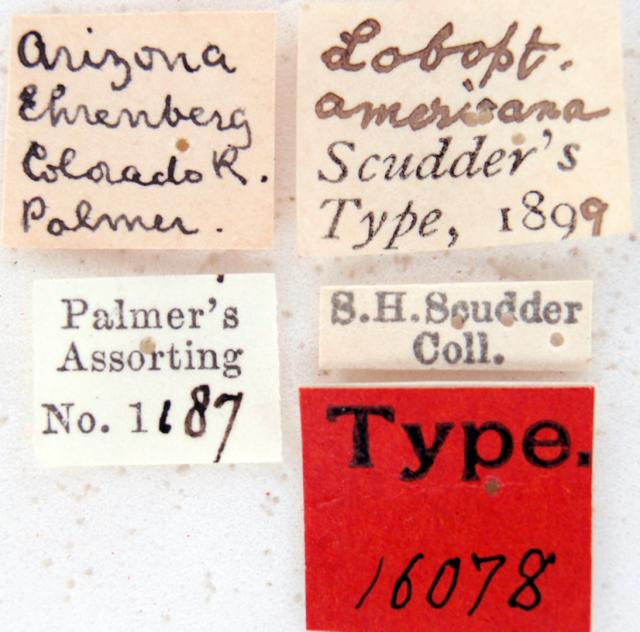 Arizona
Ehrenberg
Colorado R.
Palmer.
Lobopt.
americana
Scudder's
Type, 1899
Palmer's
Assorting
No. 1187
S.H.Scudder
Coll.
Type.
16078